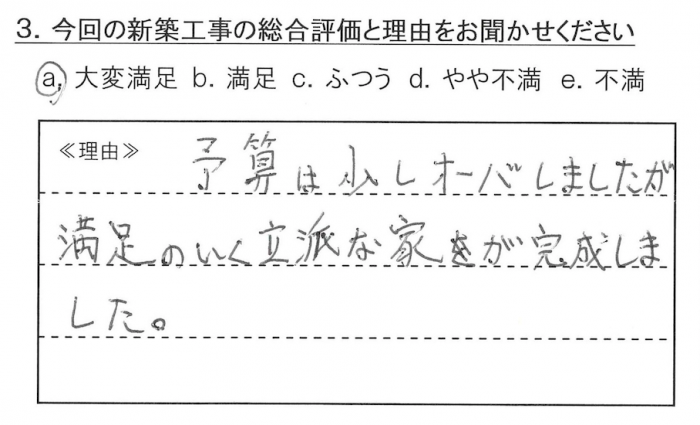 3. 今回の新築工事の総合評価と理由をお聞かせください
a. 大変満足 b. 満足 c. ふつう d. やや不満 e. 不満
≪理由≫ 予算は少しオーバしましたが
満足のいく立派な家をが完成しま
した。